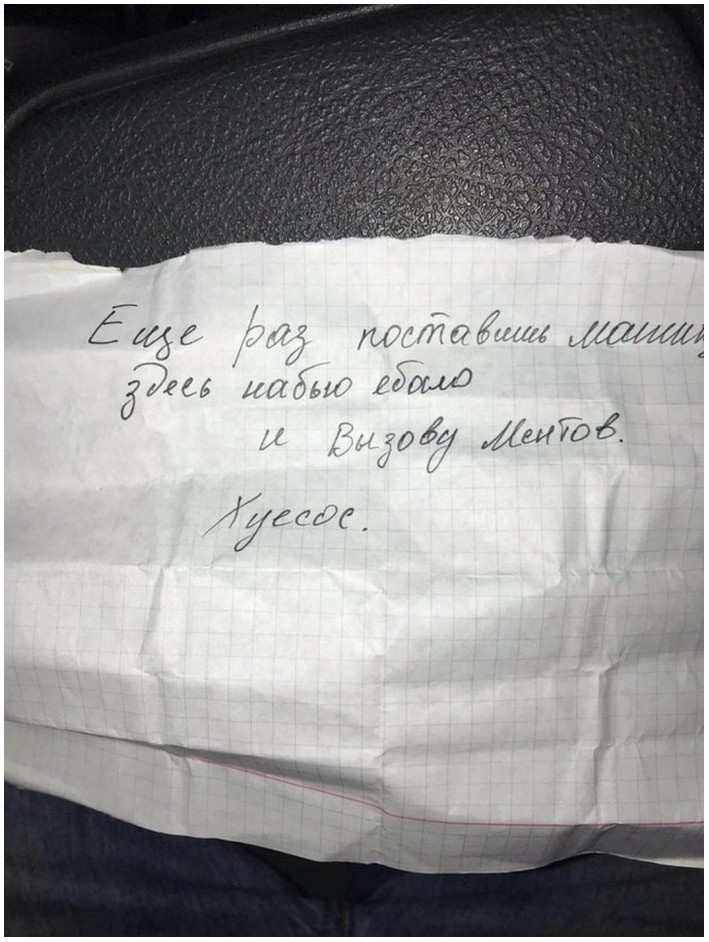 Еще раз поставишь машину
здесь набью ебало
и Вызову Ментов.
Хуесос.